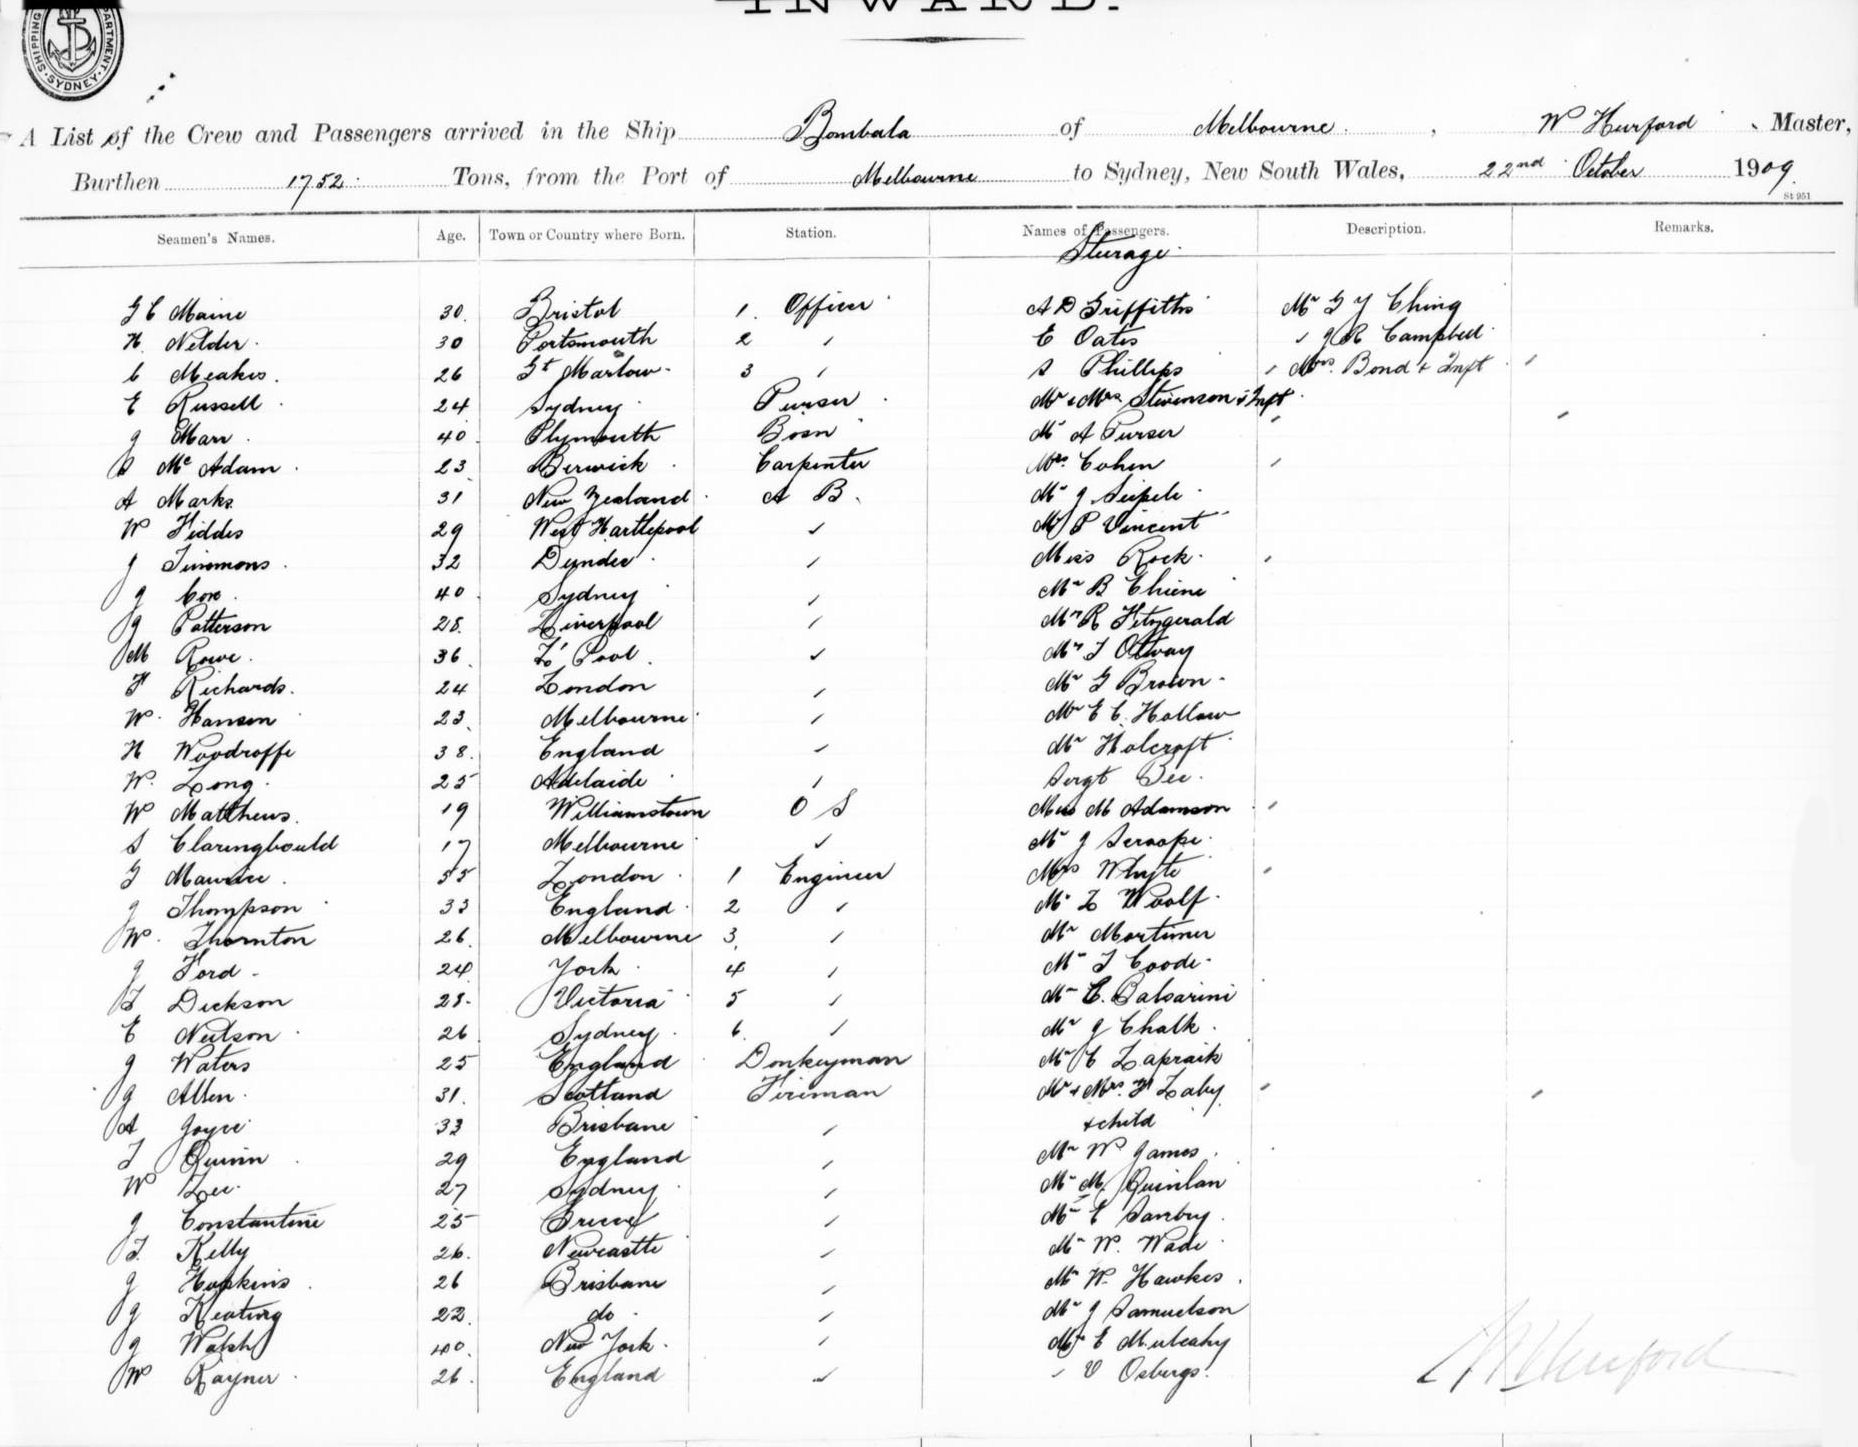 INWARD.
SHIPPING DEPARTMENT. SYDNEY
A List of the Crew and Passengers arrived in the Ship Bombala of Melbourne, W Hurford Master,
Burthen 1752 Tons, from the Port of Melbourne to Sydney, New South Wales, 22nd October 1909.
St 951
Seamen's Names. Age. Town or Country where Born. Station. Names of Passengers. Description. Remarks.
Sturage
G C Maine 30 Bristol 1 Officer A D Griffiths Mr G Y Ching
H Nelder 30 Portsmouth 2 " E Oates " J R Campbell
C Meakes 26 Gt Marlow 3 " S Phillips " Mrs Bond & Inft "
E Russell 24 Sydney Purser Mr & Mrs Stevenson & Inft
J Marr 40 Plymouth Bosn Mr A Purser
S McAdam 23 Berwick Carpenter Mrs Cohen
A Marks 31 New Zealand A B Mr J Seipele
W Fiddes 29 West Hartlepool " Mr P Vincent
J Timmons 32 Dundee " Miss Rock
J Cox 40 Sydney " Mr B Thiene
J Patterson 28 Liverpool " Mr R Fitzgerald
M Rowe 36 L'Pool " Mr T Otway
F Richards 24 London " Mr G Brown
W Hansen 23 Melbourne " Mr E C Hollow
H Woodroffe 38 England " Mr Holcroft
W Long 25 Adelaide " Sergt Bee
W Matthews 19 Williamstown O S Miss M Adamson
S Claringbould 17 Melbourne " Mr J Scroope
G Maurice 55 London 1 Engineer Mrs Whyte
J Thompson 33 England 2 " Mr L Woolf
W Thornton 26 Melbourne 3 " Mr Mortimer
J Ford 24 York 4 " Mr T Coode
T Dickson 28 Victoria 5 " Mr C. Balsarini
E Neilson 26 Sydney 6 " Mr J Chalk
J Waters 25 England Donkeyman Mr C Lapraik
J Allen 31 Scotland Fireman Mr & Mrs F Laby
A Joyce 33 Brisbane " & child
T Quinn 29 England " Mr W James
W Lee 27 Sydney " Mr M Quinlan
J Constantine 25 Greece " Mr E Sanbry
T Kelly 26 Newcastle " Mr W. Wade
J Hopkins 26 Brisbane " Mr W Hawkes
J Keating 22 do " Mr J Samuelson
J Walsh 40 New York " Mr E Mulcahy
W Rayner 26 England " " V Osbergs
W Hurford